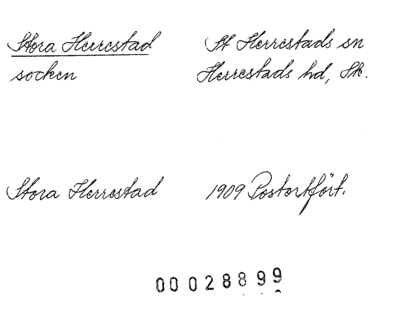 Stora Herrestad
socken
St Herrestads sn
Herrestads hd, Sk.
Stora Herrestad
1909 Postortfört.
00028899